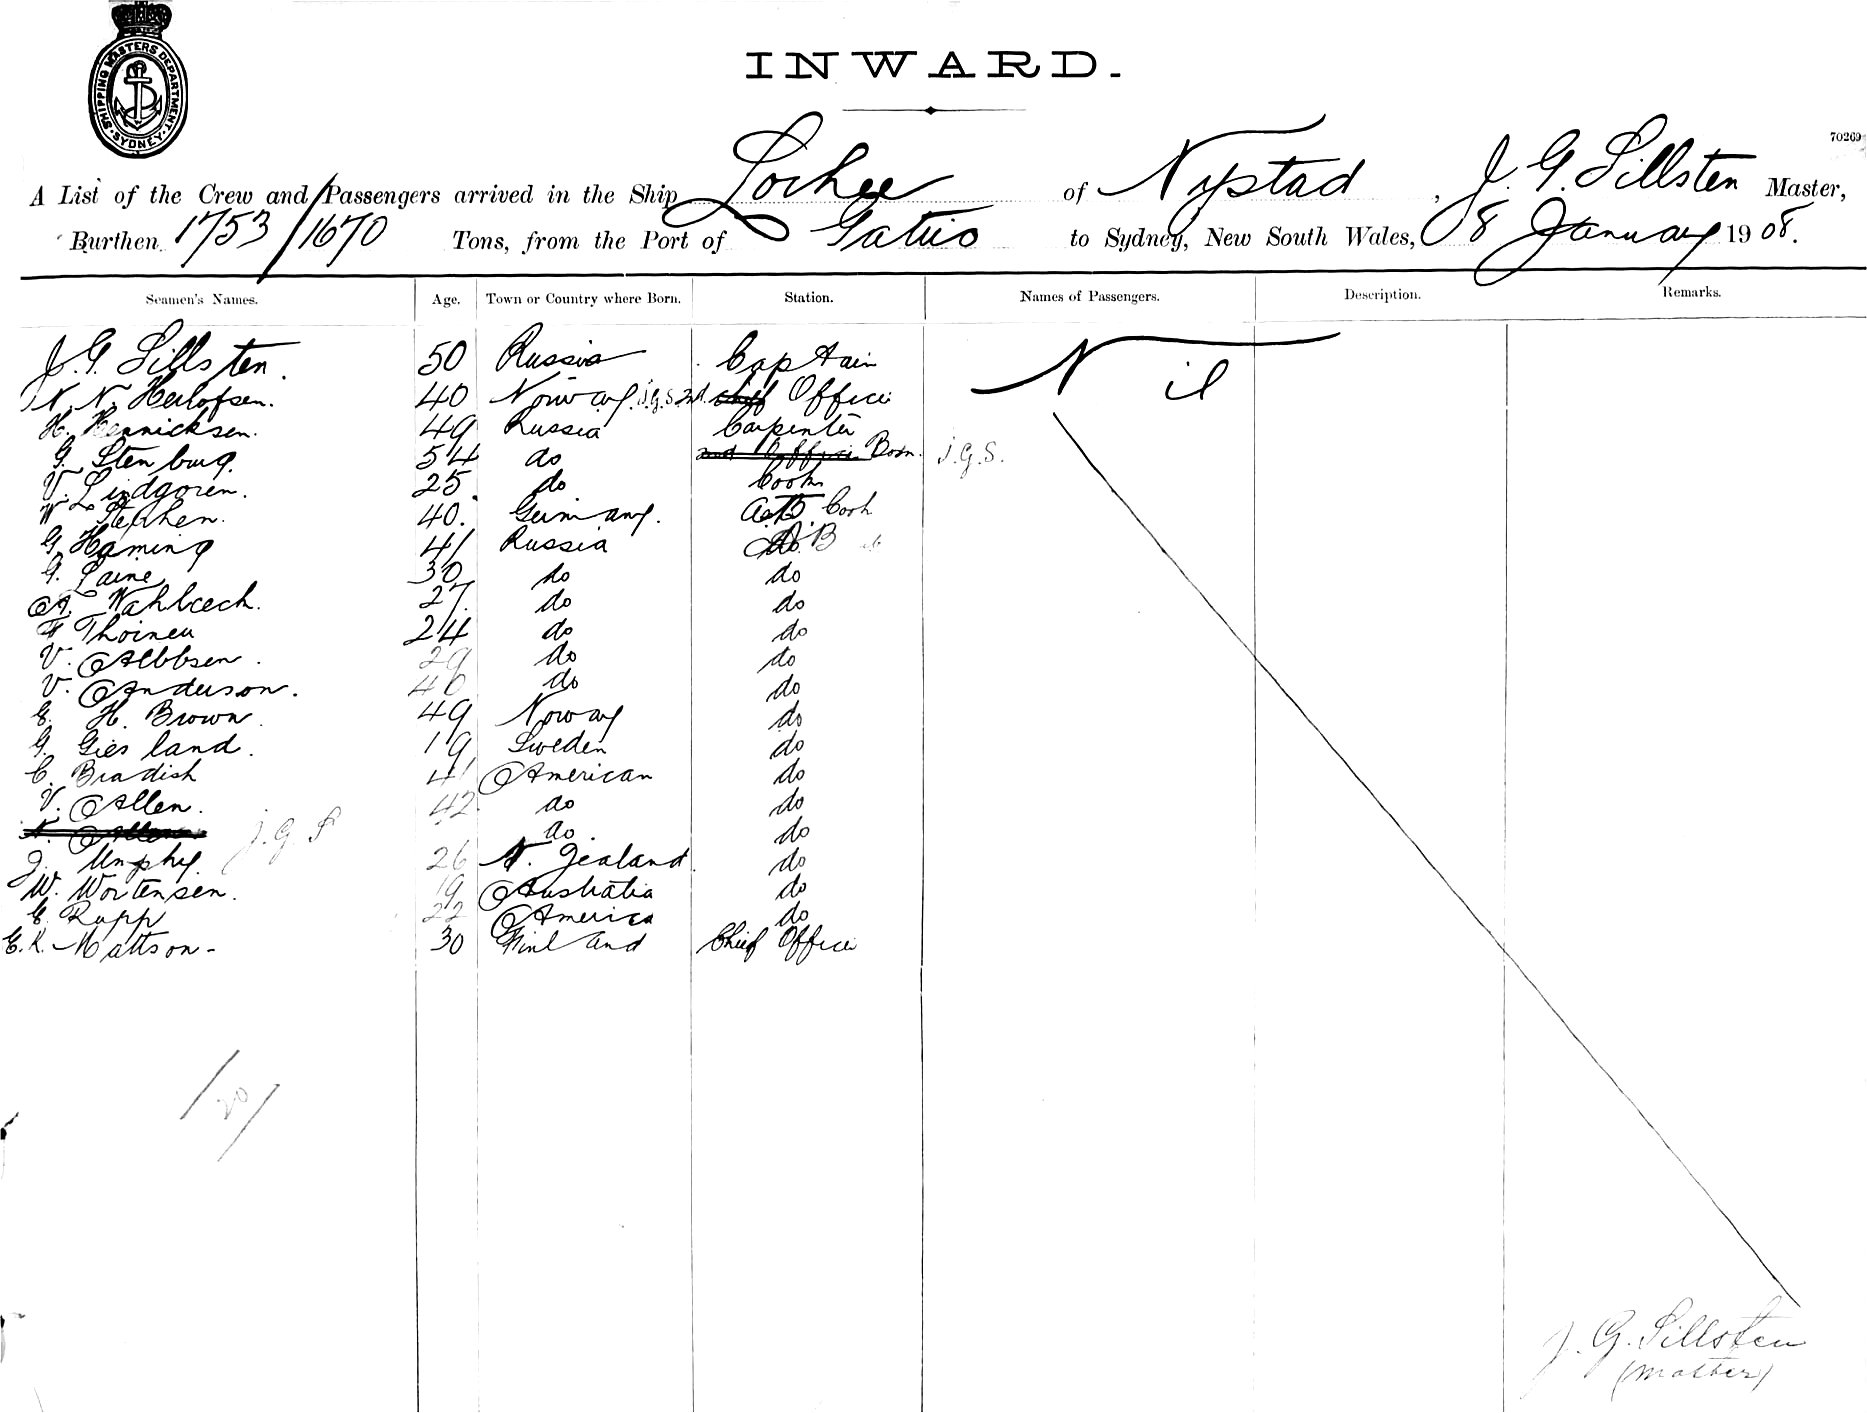 SHIPPING MASTERS DEPARTMENT
SYDNEY
INWARD.
70269
A List of the Crew and Passengers arrived in the Ship Lochee of Nystad, J. G. Sillsten Master,
Burthen 1753/1670 Tons, from the Port of to Sydney, New South Wales, 8 January 1908.
Seamen's Names. Age. Town or Country where Born. Station. Names of Passengers. Description. Remarks.
J. G. Sillsten. 50 Russia Captain Nil
N. N. Herlofsen. 40 Norway. J.G.S. 2nd Office
H. Hennicksen. 49 Russia Carpenter
G. Stenburg. 54 do Bosn. J.G.S.
V. Lindgoren. 25 do Cook
W Stephen. 40. Germany. Cook
G Haming 41 Russia AB
G. Laine 30 do do
A. 27. do do
F 24 do do
V. 29 do do
V. Anderson. 40 do do
E. H. Brown. 49 Noway do
G. Giesland. 19 Sweden do
C. Bradish 41 American do
V. Allen. 42 do do
J. G. S do. do
J. Umphy. 26 N. Zealand. do
W. Wortensen. 19 Australia do
E. Rupp 22 America do
E. K. Mattson - 30 Finland Chief Office
/20/
J. G. Sillsten
(Master)